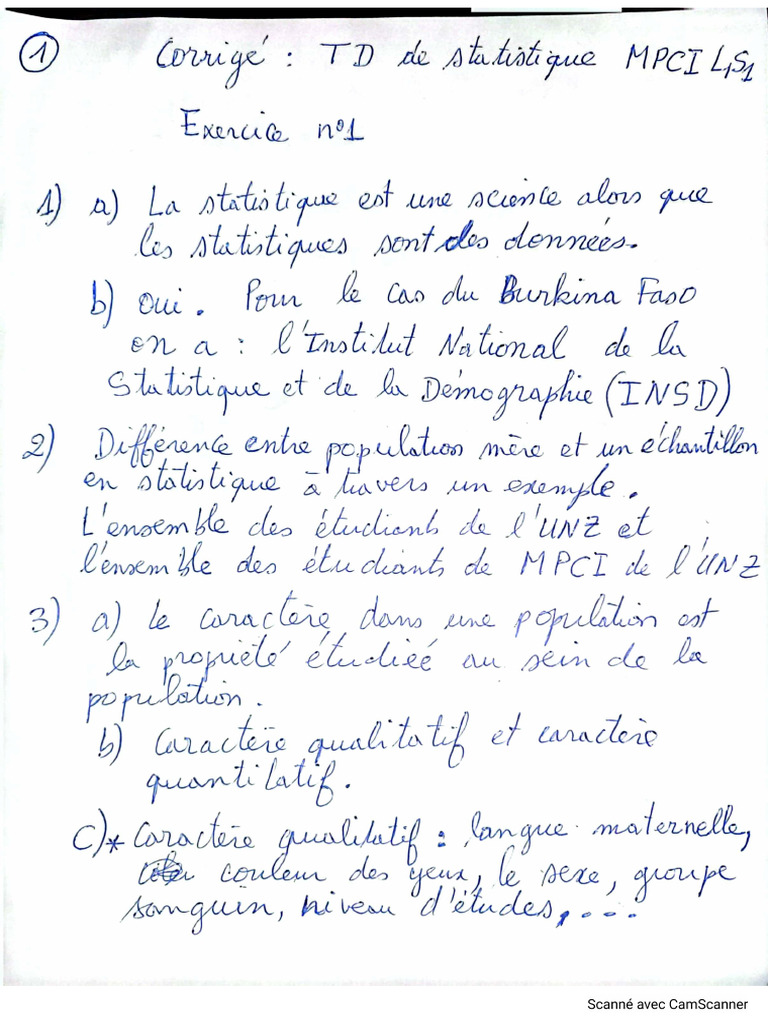 1 Corrigé : TD de statistique MPCI L1S1
Exercice n°1
1) a) La statistique est une science alors que
les statistiques sont des données.
b) oui. Pour le cas du Burkina Faso
on a : l'Institut National de la
Statistique et de la Démographie (INSD)
2) Différence entre population mère et un échantillon
en statistique à travers un exemple.
L'ensemble des étudiants de l'UNZ et
l'ensemble des étudiants de MPCI de l'UNZ
3) a) Le caractère dans une population est
la propriété étudiéé au sein de la
population.
b) Caractère qualitatif et caractère
quantitatif.
C)* Caractère qualitatif : langue maternelle,
couleur des yeux, le sexe, groupe
sanguin, niveau d'études,....
Scanné avec CamScanner